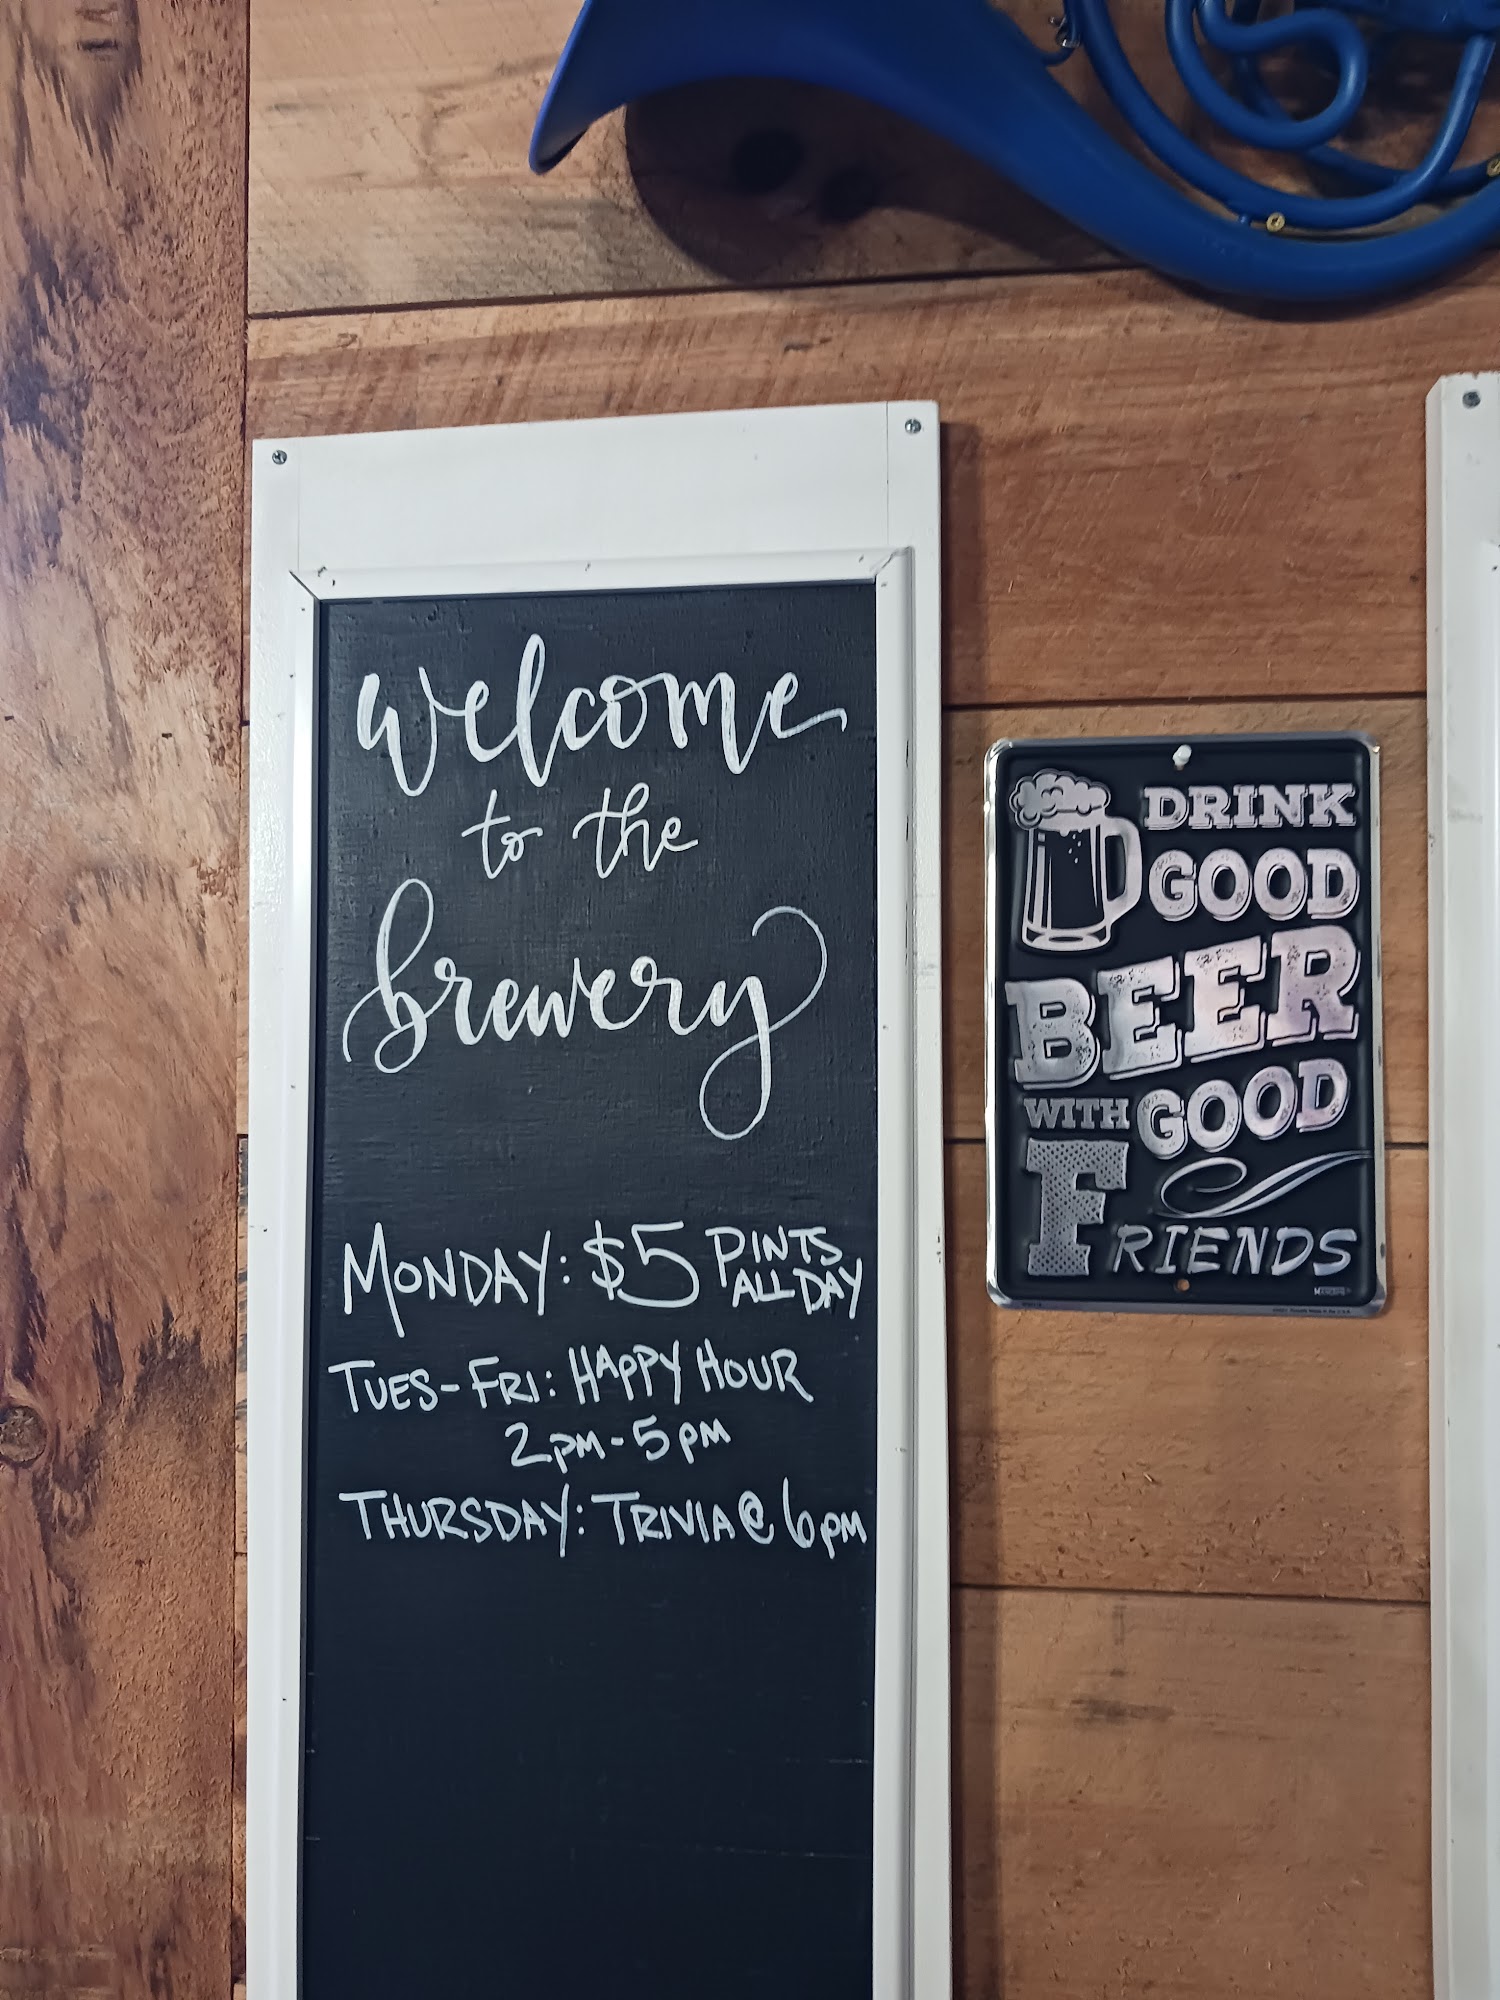 Welcome
to the
brewery
MONDAY: $5 PINTS
ALL DAY
TUES-FRI: HAPPY HOUR
2PM-5PM
THURSDAY: TRIVIA @ 6PM
DRINK
GOOD
BEER
WITH GOOD
FRIENDS